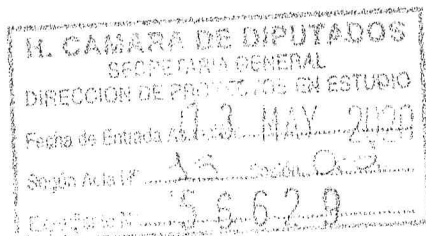 H. CAMARA DE DIPUTADOS
SECRETARIA GENERAL
DIRECCION DE PROYECTOS EN ESTUDIO
Fecha de Entrada MAY 2020
Según Acta Nº Sesión
Expediente Nº 56629